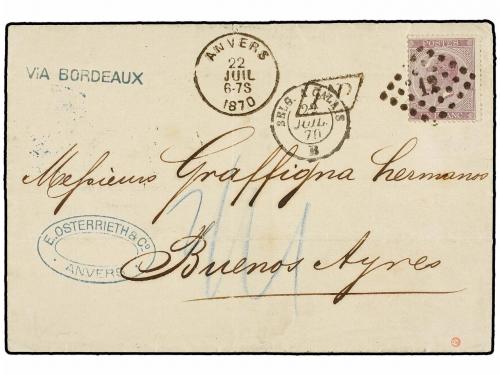 VIA BORDEAUX
ANVERS
22
JUIL
6-7S
1870
BELG. A CALAIS
22
JUIL
70
B
POSTES
12
Messieurs Graffigna hermanos
E. OSTERRIETH & Co.
ANVERS
Buenos Ayres